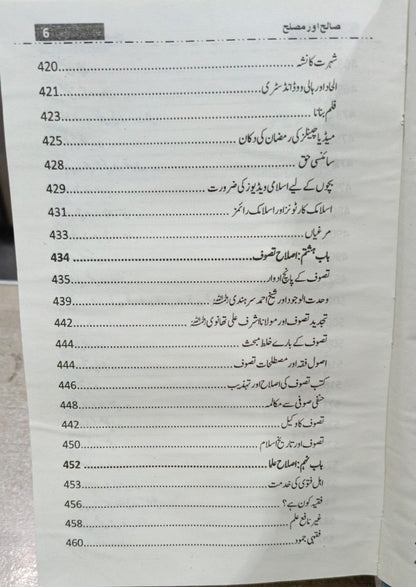 صالح اور مصلح 6
شہرت کا نشہ 420
الحاد اور ہالی ووڈ انڈسٹری 421
فلم بنانا 423
میڈیا چینلز کی رمضان کی دکان 425
سائنسی حق 428
بچوں کے لیے اسلامی ویڈیوز کی ضرورت 429
اسلامک کارٹونز اور اسلامک رائمز 431
مرغیاں 433
باب ہشتم: اصلاح تصوف 434
تصوف کے پانچ ادوار 435
وحدت الوجود اور شیخ احمد سرہندی رحمہ اللہ 439
تجدید تصوف اور مولانا اشرف علی تھانوی رحمہ اللہ 442
تصوف کے بارے خلط مبحث 444
اصول فقہ اور مصطلحات تصوف 444
کتب تصوف کی اصلاح اور تہذیب 446
حنفی صوفی سے مکالمہ 448
تصوف کا وکیل 442
تصوف اور تاریخ اسلام 450
باب نہم: اصلاح علما 452
اہل فتویٰ کی خدمت 453
فقیہ کون ہے؟ 456
غیر نافع علم 458
فقہی جمود 460